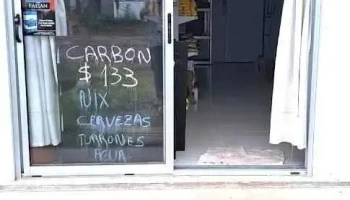 CARBON
$ 133
NIX
CERVEZAS
TURRONES
AGUA